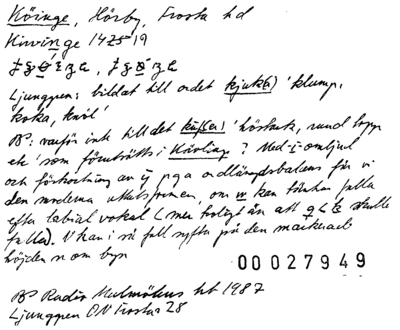 Köinge, Hörby, Frosta hd
Kivinge 1425 19
Ljunggren: bildat till ordet kjuk(a) 'klump,
koka, knöl'
BP: varför inte till det 'höstack, rund topp
etc' som förutsätts i Kävlinge? Med i-omljud
och förkortning av pga ordlängdsbalans får vi
den moderna uttalsformen, om w kan tänkas falla
efter labial vokal (mer troligt än att skulle
falla). V kan i så fall syfta på den markerade
höjden n om byn
00027949
BP Radio Malmöhus ht 1987
Ljunggren ON Frosta 28